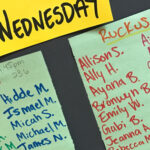 WEDNESDAY
45pm
236
Hidde M.
Ismael M.
Micah S.
Michael M.
James N.
RUCKUS
Allison S.
Ally H.
Ayana B.
Bronwyn B
Emily W.
Gabi B.
Jeanna
Rebecca